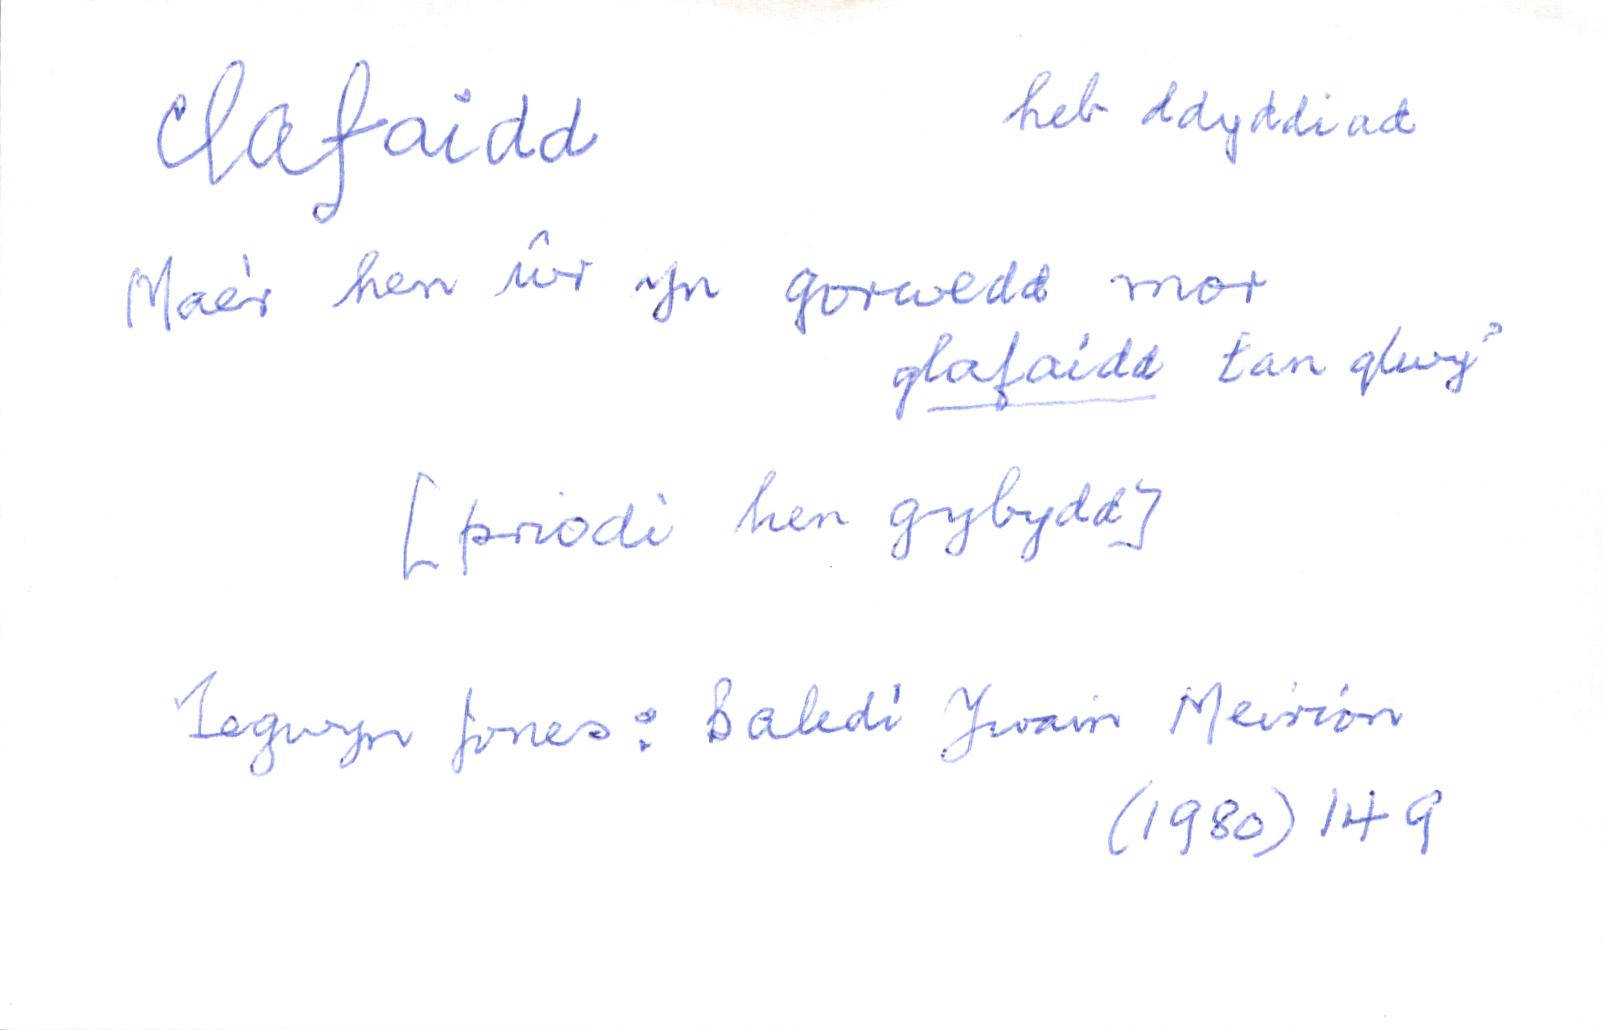 clafaidd heb ddyddiad
Mae'r hen ŵr yn gorwedd mor
glafaidd tan glwy'
[priodi hen gybydd]
Tegwyn Jones: Baledi Ywain Meirion
(1980) 149